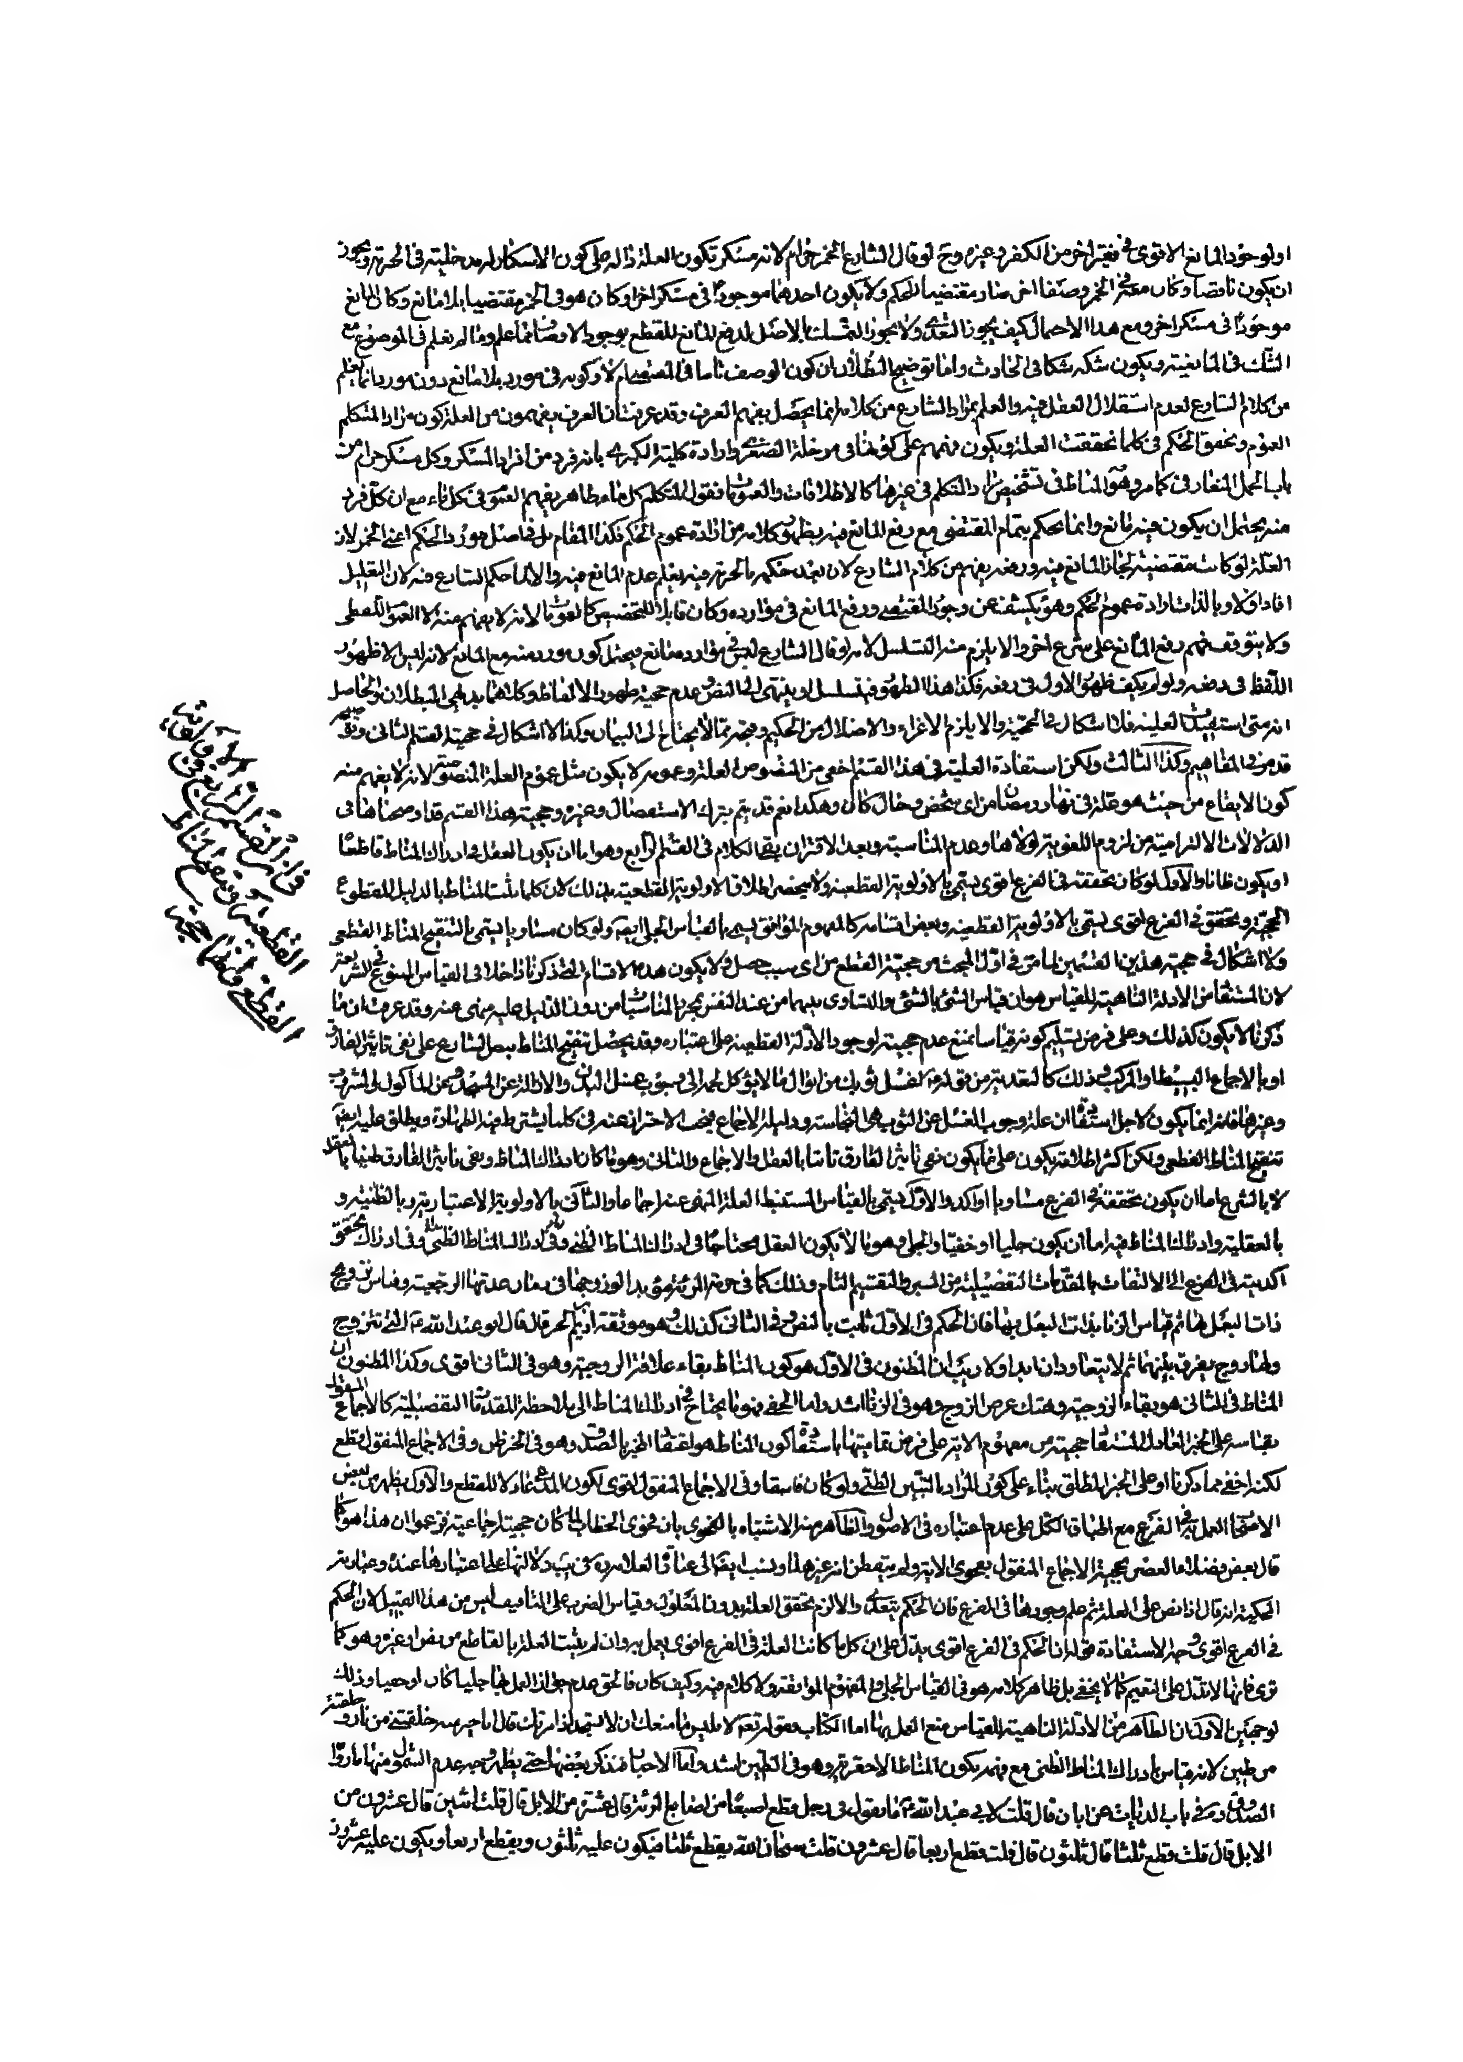 او لوجود المانع الاقوى في فقير اخر من الكفر وغيره وح لو قال الشارع الخمر حرام لانه مسكر تكون العلة دالة على كون الاسكار له مدخلية في الحرمة ويجوز
ان يكون ناقصا وكان معه في الخمر وصفا اخر صار مقتضيا للحكم ولا يكون احدهما موجودا في مسكر اخر او كان هو في الخمر مقتضيا بلا مانع وكان المانع
موجودا في مسكر اخر ومع هذا الاحتمال كيف يجوز التعدي ولا يجوز التمسك بالاصل لدفع المانع للقطع بوجود الاوصاف مما علم ومما لم نعلم في الموضوع مع
الشك في المانعية ويكون شكه شكا في الحادث واما توضيح البطلان ان كون الوصف تاما في المقتضي ام لا وكونه في مورد بلا مانع دون مورد انما يعلم
من كلام الشارع لعدم استقلال العقل فيه والعلم بمراد الشارع من كلامه انما يحصل بفهم العرف وقد عرفت ان العرف يفهمون من العلة كون مراد المتكلم
العموم وتحقق الحكم في كلما تحققت العلة ويكون فهمهم على كونها في مرحلة الصغرى وارادة كلية الكبرى بانه فرد من افراد المسكر وكل مسكر حرام من
باب الحمل المتعارف كما مر وهو المناط في تشخيص مراد المتكلم في غيرها كالاطلاقات والعمومات فقول المتكلم كل ماء طاهر يفهم العموم في كل ماء مع ان كل فرد
منه يحتمل ان يكون فيه مانع وانما يحكم بتمام المقتضي مع رفع المانع فيه بظهور كلامه من ارادة عموم الحكم فكذا المقام بل في اصل مورد الحكم اعني الخمر لان
العلة لو كانت مقتضية لجاز المانع فيه ورفعه يفهم من كلام الشارع لان بعد حكمه بالحرمة فيه يعلم عدم المانع فيه والا لما حكم الشارع فيه لان التعليل
افاد اولا وبالذات ارادة عموم الحكم وهو يكشف عن وجود المقتضي ورفع المانع في موارده وكان قابلا للتخصيص كالعمومات لانه لا يفهم منه الا العموم اللفظي
ولا يتوقف فهم رفع المانع على شرع اخر والا يلزم منه التسلسل لانه لو قال الشارع ليس في موارده مانع فيحتمل كون مورد منه مع المانع لانه ليس الا ظهور
اللفظ في دفعه ولو لم يكف ظهور الاول في رفعه فكذا هذا الظهور فيتسلسل او ينتهى الى النص وعدم حجية ظهور الالفاظ وكلاهما بديهي البطلان والحاصل
انه متى استفيدت العلية فلا اشكال في الحجية والا يلزم الاغراء والاضلال من الحكيم وقبحه مما لا يحتاج الى البيان وكذا لا اشكال في حجية القسم الثاني
قد مر في المفاهيم وكذا الثالث ولكن استفادة العلية في هذا القسم اخفى من المنصوص العلة وعمومه لا يكون مثل عموم العلة المنصوصة لانه لا يفهم منه
كون الايقاع من حيث هو علة في نهار رمضان من اي شخص وحال كان وهكذا نعم قد يتم بترك الاستفصال وغيره وحجية هذا القسم قد اوضحناها في
الدلالات الالتزامية من لزوم اللغوية لولاها وعدم المناسبة وبعد الاقتران بقي الكلام في القسم الرابع وهو اما ان يكون العقل في ادراك المناط قاطعا
او يكون ظانا والاول لو كان تحققه في الفرع اقوى يسمى بالاولوية القطعية ولا ينحصر اطلاق الاولوية القطعية بذلك لان كلما ثبت المناط بالدليل المقطوع
الحجية وتحقق في الفرع اقوى يسمى بالاولوية القطعية وبعض اقسامه كالمفهوم الموافق يسمى بالقياس الجلي ايضا ولو كان مساويا يسمى بالتنقيح المناط القطعي
ولا اشكال في حجية هذين القسمين لما مر في اول المبحث من حجية القطع من اي سبب حصل ولا يكون هذه الاقسام التي ذكرنا داخلا في القياس الممنوع في الشريعة
لان المستفاد من الادلة الناهية للقياس هو ان قياس الشئ بالشئ والتساوي بينهما من عند النفس بمجرد المناسبات من دون الدليل عليه منهي عنه وقد عرفت ان ما
ذكرنا لا يكون كذلك وعلى فرض تسليم كونه قياسا نمنع عدم حجيته لوجود الادلة القطعية على اعتباره وقد يحصل تنقيح المناط بنص الشارع على نفي تاثير الفارق
او بالاجماع البسيط او المركب وذلك كالتعدية من قوله اغسل ثوبك من ابوال ما لا يؤكل لحمه الى وجوب غسل البدن والازالة عن المسجد وعن المأكول والمشروب
وغيرها فانه انما يكون لاجل استفادة ان علة وجوب الغسل عن الثوب هي النجاسة ودليله الاجماع فيجب الاحتراز عنه في كلما يشترط فيه الطهارة ويطلق عليه ايضا
تنقيح المناط القطعي ولكن اكثر اطلاقه يكون على ما يكون نفي تاثير الفارق ثابتا بالعقل والاجماع والثاني وهو ما كان ادراك المناط ونفي تاثير الفارق ظنيا بالعقل
لا بالشرع اما ان يكون تحققه في الفرع مساويا او اكد والاول يسمى بالقياس المستنبط العلة المنهي عنه اجماعا والثاني بالاولوية الاعتبارية وبالظنية و
بالعقلية وادراك المناط فيه اما ان يكون جليا او خفيا والجلي وهو ما لا يكون العقل محتاجا في ادراك المناط الظني وفي ادراك تحقق
اكديته في الفرع الى الالتفات بالمقدمات التفصيلية من السبر والتقسيم التام وذلك كما في حرمة المزنية مؤبدا لو زوجها في زمان عدتها الرجعية وقياس تزويج
ذات البعل بها ثم قياس الزنا بذات البعل بهما فان الحكم في الاول ثابت بالنص وفي الثاني كذلك وهو موثقة اديم الحر قال قال ابو عبد الله ع التي تتزوج
ولها زوج يفرق بينهما ثم لا يتعاودان ابدا ولا ريب ان المظنون في الاول هو كون المناط بقاء علاقة الزوجية وهو في الثاني اقوى وكذا المظنون ان
المناط في الثاني هو بقاء الزوجية وهتك عرض الزوج وهو في الزنا اشد واما الخفي فهو ما يحتاج في ادراك المناط الى ملاحظة المقدمات التفصيلية كالاجماع المنقول
بقياسه على الخبر العادل المستفاد حجيته من مفهوم الاية على فرض تماميتها باستفادة كون المناط هو اعتقاد المخبر بالصدق وهو في الخبر ظن وفي الاجماع المنقول قطع
لكنه اخفى مما ذكرنا او على الخبر المطلق بناء على كون المراد بالتبين الظني ولو كان فاسقا وفي الاجماع المنقول اقوى لكون المدعي عادلا للقطع والاول يظهر من بعض
الاصحاب العمل به في الفرع مع اطباق الكل على عدم اعتباره في الاصول والظاهر منه الاشتباه بالفحوى بان فحوى الخطاب لما كان حجيته اجماعية فزعموا ان هذا هو كما
قال بعض فضلاء العصر بحجية الاجماع المنقول بفحوى الاية ولم يتفطن انه غيرها ونسب ايضا الى العلامة ره في يب دلالتها على اعتبارها عنده وعبارته
المحكية انه قال اذا نص على العلة ثم علم وجودها في الفرع فان الحكم يتعدى والا لزم تحقق العلة بدون المعلول وقياس الضرب على التأفيف ليس من هذا القبيل لان الحكم
في الفرع اقوى وجه الاستفادة قوله ان الحكم في الفرع اقوى يدل على ان كل ما كانت العلة في الفرع اقوى يعمل به وان لم يثبت العلة بالقاطع من نص او غيره وهو كما
ترى فانها لا تدل على التعميم كما لا يخفى بل ظاهر كلامه هو في القياس الجلي والمفهوم الموافقة ولا كلام فيه وكيف كان فالحق عدم جواز العمل بها جليا كان او خفيا وذلك
لوجهين الاول ان الظاهر من الادلة الناهية للقياس منع العمل بها اما الكتاب فقوله تعالى لابليس ما منعك ان لا تسجد اذ امرتك قال انا خير منه خلقتني من نار وخلقته
من طين لانه قياس بادراك المناط الظني مع فهمه بكون المناط الاحقرية وهو في الطين اشد واما الاخبار فنذكر بعضها حتى يظهر وجه عدم الشمول منها ما رواه
الصدوق ره في باب الديات عن ابان قال قلت لابي عبد الله ع ما يقول في رجل قطع اصبعا من اصابع المرئة قال عشرة من الابل قال قلت اثنين قال عشرون من
الابل قال قلت قطع ثلثا قال ثلثون قال قلت قطع اربعا قال عشرون قلت سبحان الله يقطع ثلثا فيكون عليه ثلثون ويقطع اربعا ويكون عليه عشرون
في ان القسم الرابع من
القطعية وتنقيح المناط
القطعي وانهما حجة